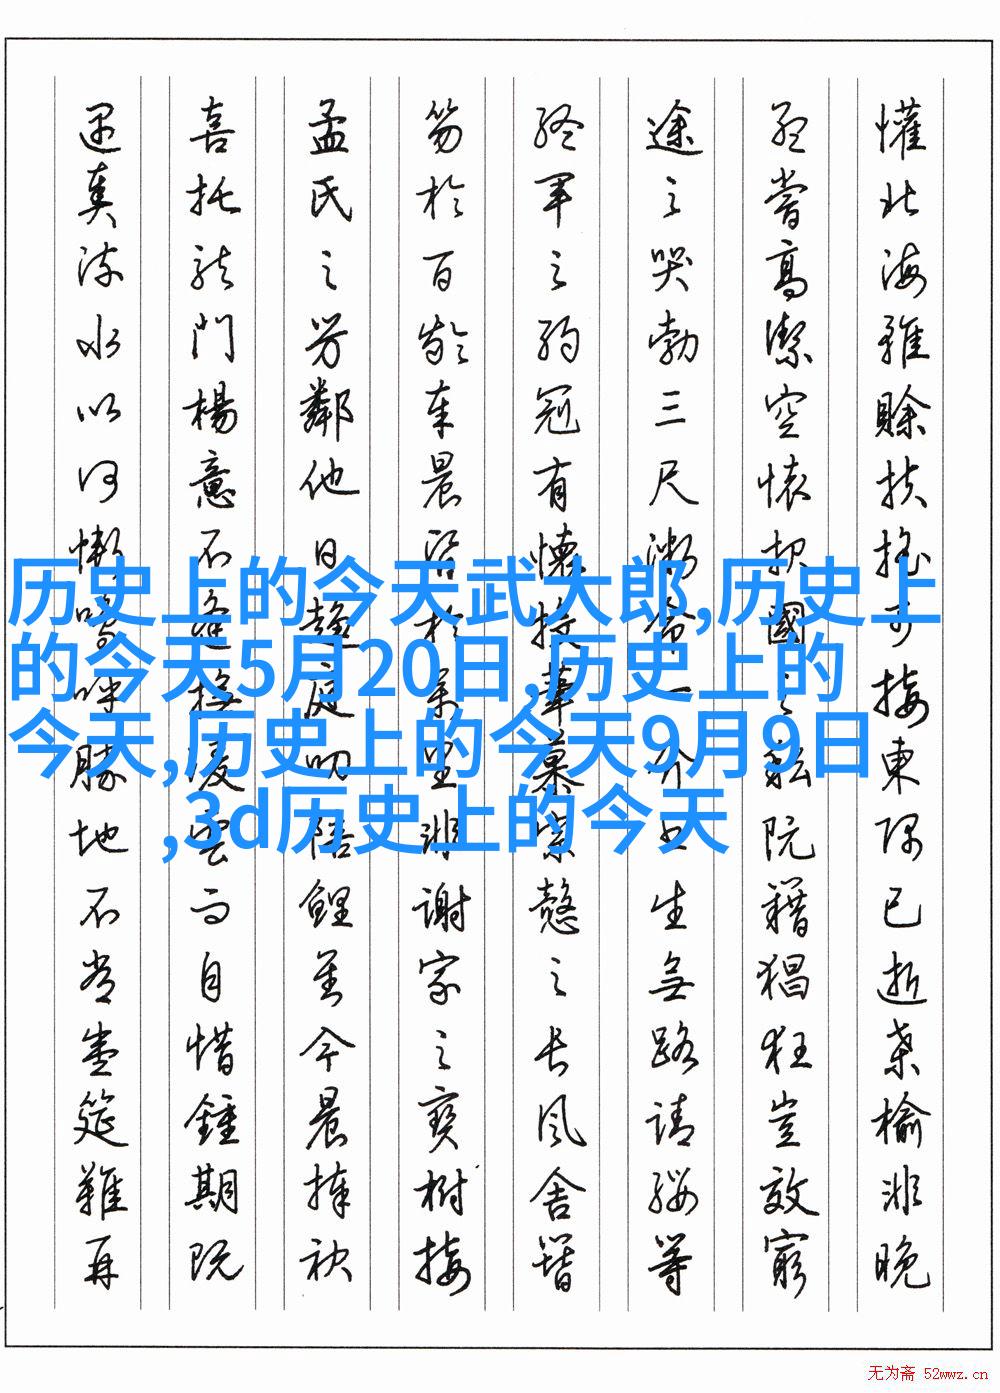 懽北海雖賒扶搖可接東隅已逝桑榆非晚
孟嘗高潔空懷報國之阮籍猖狂豈效窮
途之哭勃三尺微命一介書生無路請纓等
終軍之弱冠有懷投筆慕宗愨之長風舍簪
笏於百齡奉晨昏於萬里非謝家之寶樹接
孟氏之芳鄰他日趨庭叨陪鯉對今晨捧袂
喜托龍門楊意不逢撫凌雲而自惜鍾期既
遇奏流水以何慚嗚呼勝地不常盛筵難再
历史上的今天武大郎,历史上
的今天5月20日,历史上的
今天,历史上的今天9月9日
,3d历史上的今天
无为斋 52wwz.cn